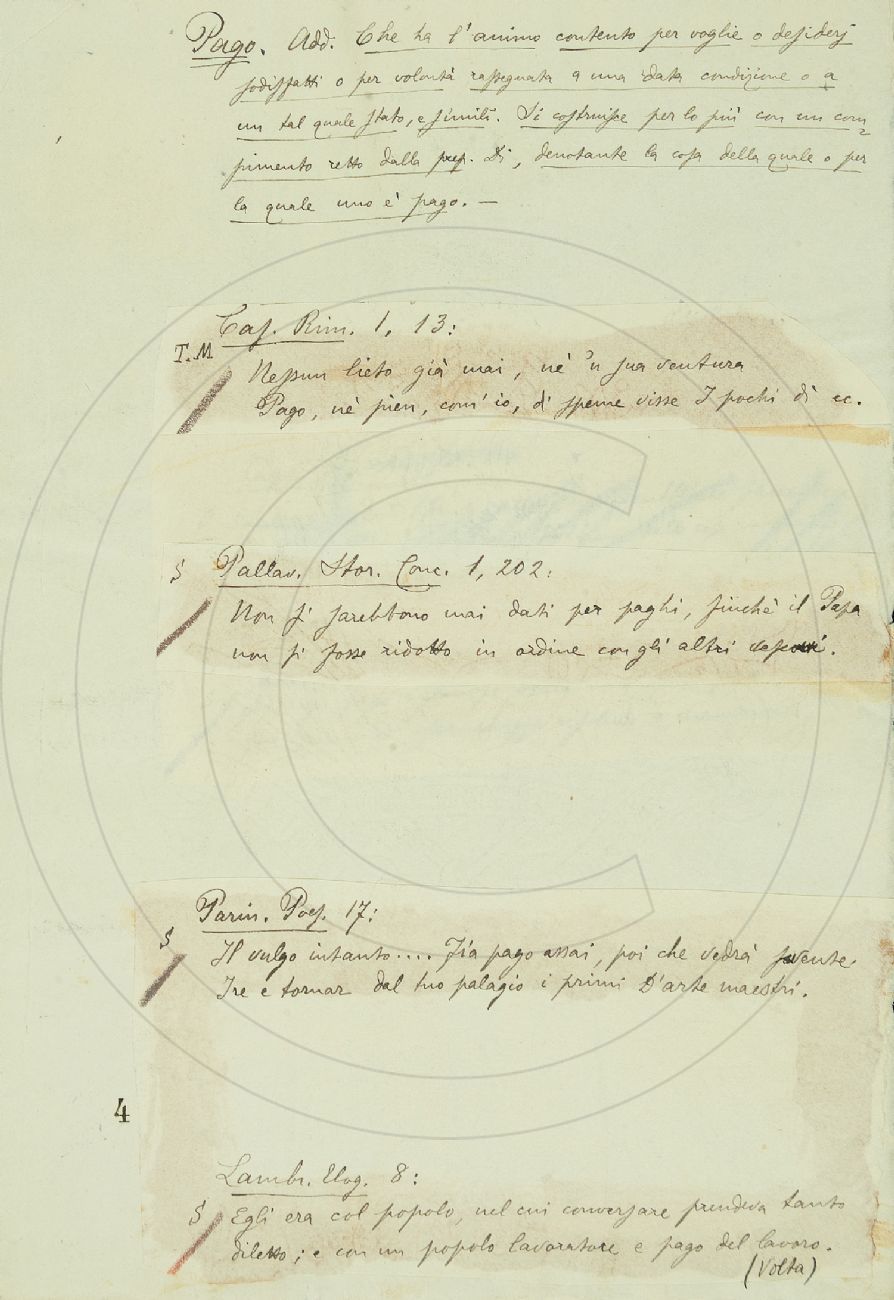 Pago. Add. Che ha l'animo contento per voglie o desiderj
sodisfatti o per volontà rassegnata a una data condizione o a
un tal quale stato, e simili. Si costruisce per lo più con un com=
pimento retto dalla prep. Di, denotante la cosa della quale o per
la quale uno è pago. —
Cas. Rim. 1, 13:
T. M
Nessun lieto già mai, nè 'n sua ventura
Pago, nè pien, com' io, di speme visse I pochi dì ec.
§ Pallav. Stor. Conc. 1, 202:
Non si sarebbono mai dati per paghi, finchè il Papa
non si fosse ridotto in ordine con gli altri vescovi.
Parin. Poes. 17:
§
Il vulgo intanto.... Fia pago assai, poi che vedrà sovente
Ire e tornar dal tuo palagio i primi D'arte maestri.
4
Lambr. Elog. 8:
§ Egli era col popolo, nel cui conversare prendeva tanto
diletto; e con un popolo lavoratore e pago del lavoro.
(Volta)